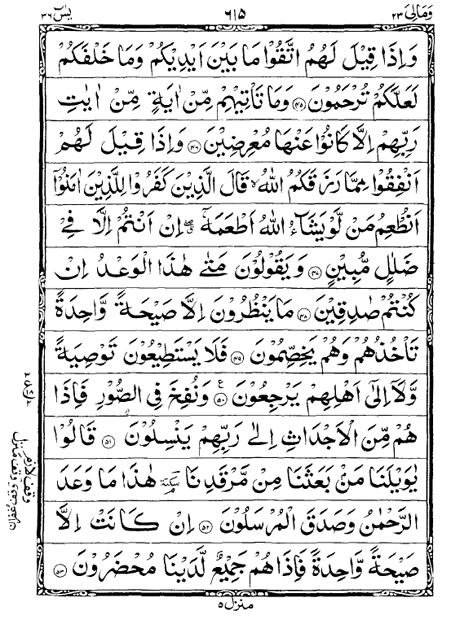 وَمَالِىَ ٢٣ ٦١٥ يٰسٓ ٣٦
وَاِذَا قِيْلَ لَهُمُ اتَّقُوْا مَا بَيْنَ اَيْدِيْكُمْ وَمَا خَلْفَكُمْ
لَعَلَّكُمْ تُرْحَمُوْنَ ﴿٤٥﴾ وَمَا تَاْتِيْهِمْ مِّنْ اٰيَةٍ مِّنْ اٰيٰتِ
رَبِّهِمْ اِلَّا كَانُوْا عَنْهَا مُعْرِضِيْنَ ﴿٤٦﴾ وَاِذَا قِيْلَ لَهُمْ
اَنْفِقُوْا مِمَّا رَزَقَكُمُ اللّٰهُ ۙ قَالَ الَّذِيْنَ كَفَرُوْا لِلَّذِيْنَ اٰمَنُوْٓا
اَنُطْعِمُ مَنْ لَّوْ يَشَآءُ اللّٰهُ اَطْعَمَهٗۤ ۖ اِنْ اَنْتُمْ اِلَّا فِيْ
ضَلٰلٍ مُّبِيْنٍ ﴿٤٧﴾ وَيَقُوْلُوْنَ مَتٰى هٰذَا الْوَعْدُ اِنْ
كُنْتُمْ صٰدِقِيْنَ ﴿٤٨﴾ مَا يَنْظُرُوْنَ اِلَّا صَيْحَةً وَّاحِدَةً
تَاْخُذُهُمْ وَهُمْ يَخِصِّمُوْنَ ﴿٤٩﴾ فَلَا يَسْتَطِيْعُوْنَ تَوْصِيَةً
وَّلَآ اِلٰٓى اَهْلِهِمْ يَرْجِعُوْنَ ﴿٥٠﴾ وَنُفِخَ فِي الصُّوْرِ فَاِذَا
هُمْ مِّنَ الْاَجْدَاثِ اِلٰى رَبِّهِمْ يَنْسِلُوْنَ ﴿٥١﴾ قَالُوْا
يٰوَيْلَنَا مَنْۢ بَعَثَنَا مِنْ مَّرْقَدِنَا ۘ سكتة هٰذَا مَا وَعَدَ
الرَّحْمٰنُ وَصَدَقَ الْمُرْسَلُوْنَ ﴿٥٢﴾ اِنْ كَانَتْ اِلَّا
صَيْحَةً وَّاحِدَةً فَاِذَا هُمْ جَمِيْعٌ لَّدَيْنَا مُحْضَرُوْنَ ﴿٥٣﴾
منزل ٥
وقف لازم